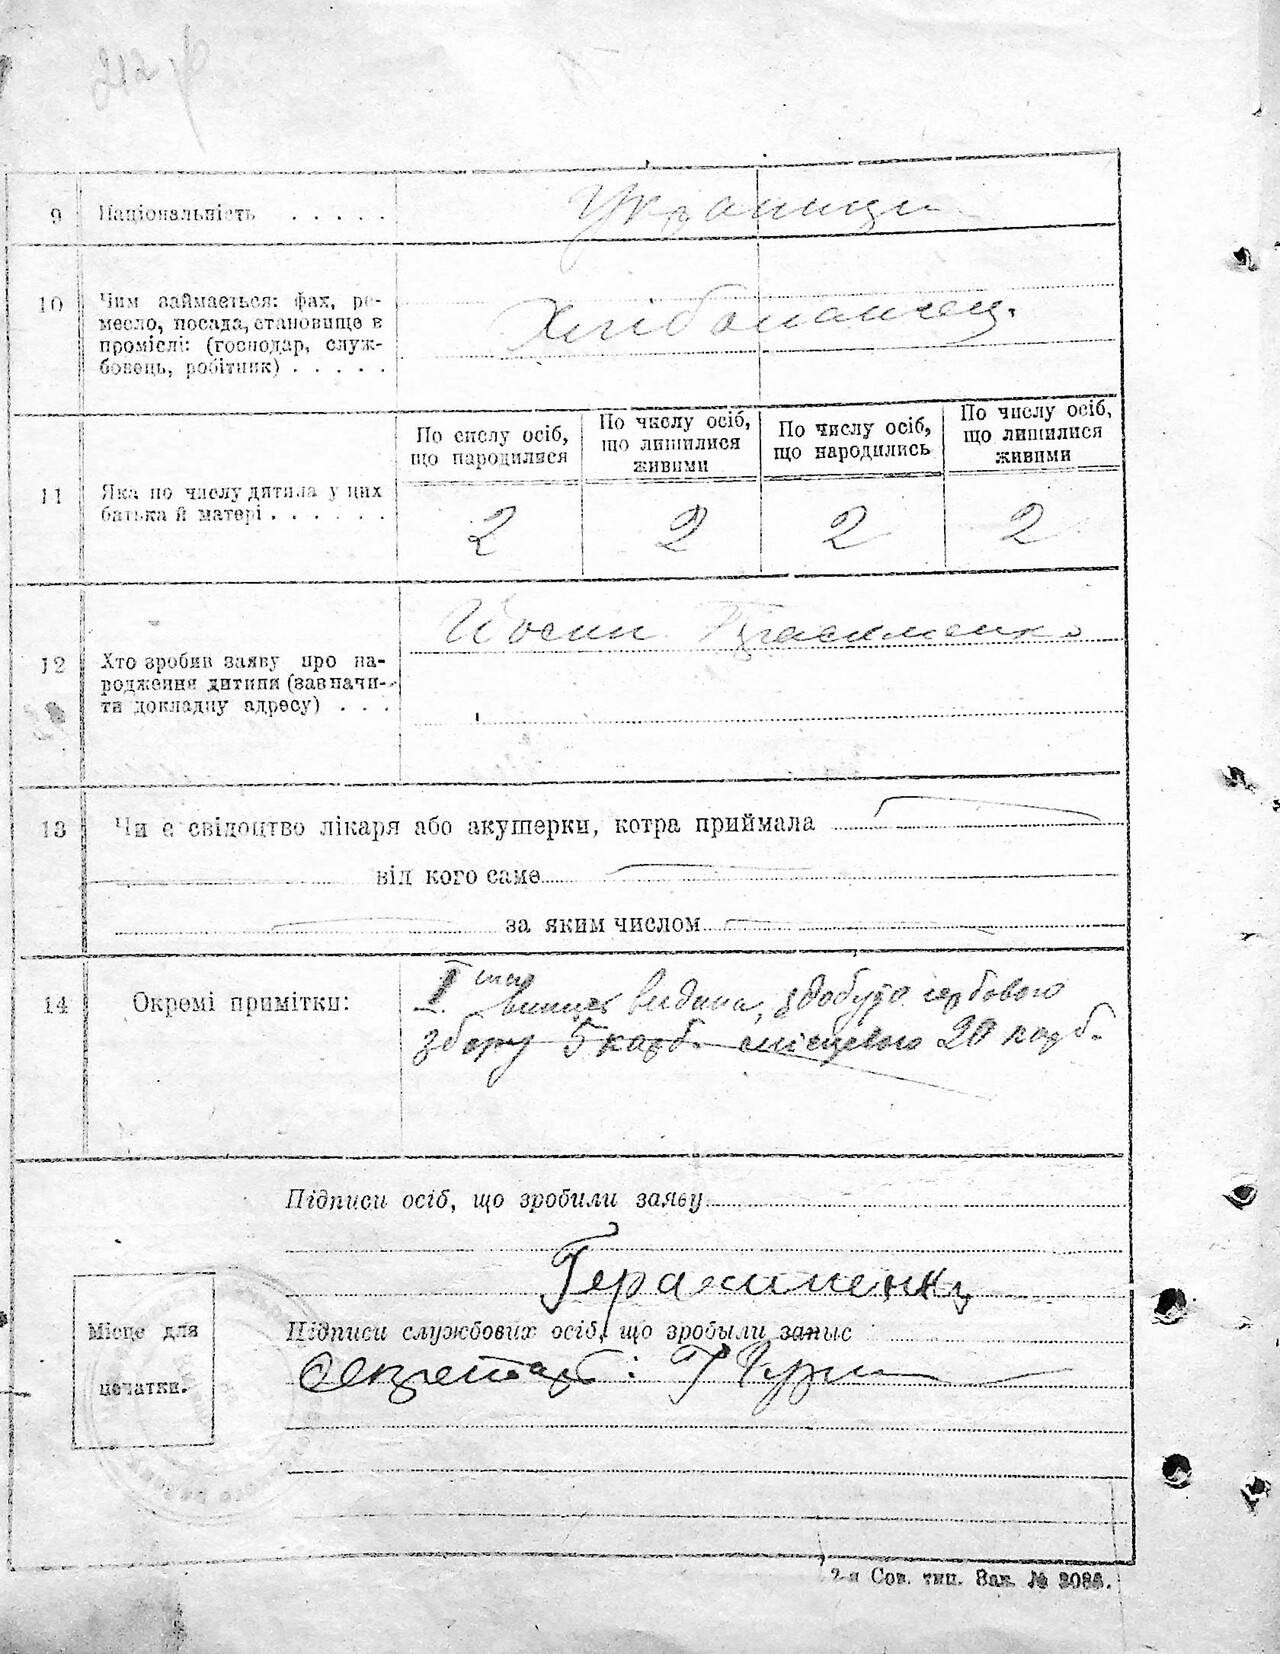 9 Національність . . . . .
Українци
10 Чим займається: фах, ре-
месло, посада, становище в
промислі: (господар, служ-
бовець, робітник) . . . . .
Хлібопашец.
По числу осіб,
що народилися
По числу осіб,
що лишилися
живими
По числу осіб,
що народились
По числу осіб,
що лишилися
живими
11 Яка по числу дитина у цих
батька й матері . . . . . .
2 2 2 2
Йосип Герасименко
12 Хто зробив заяву про на-
родження дитини (зазначи-
ти докладну адресу) . . .
13 Чи є свідоцтво лікаря або акушерки, котра приймала
від кого саме
за яким числом
14 Окремі примітки:
І видана, гербового
збору 5 карб. місцевого 20 карб.
Підписи осіб, що зробили заяву
Герасименко
Підписи службових осіб, що зробыли запыс
Секретарь:
Місце для
печатки.
2-я Сов. тип. Зак. № 3086.